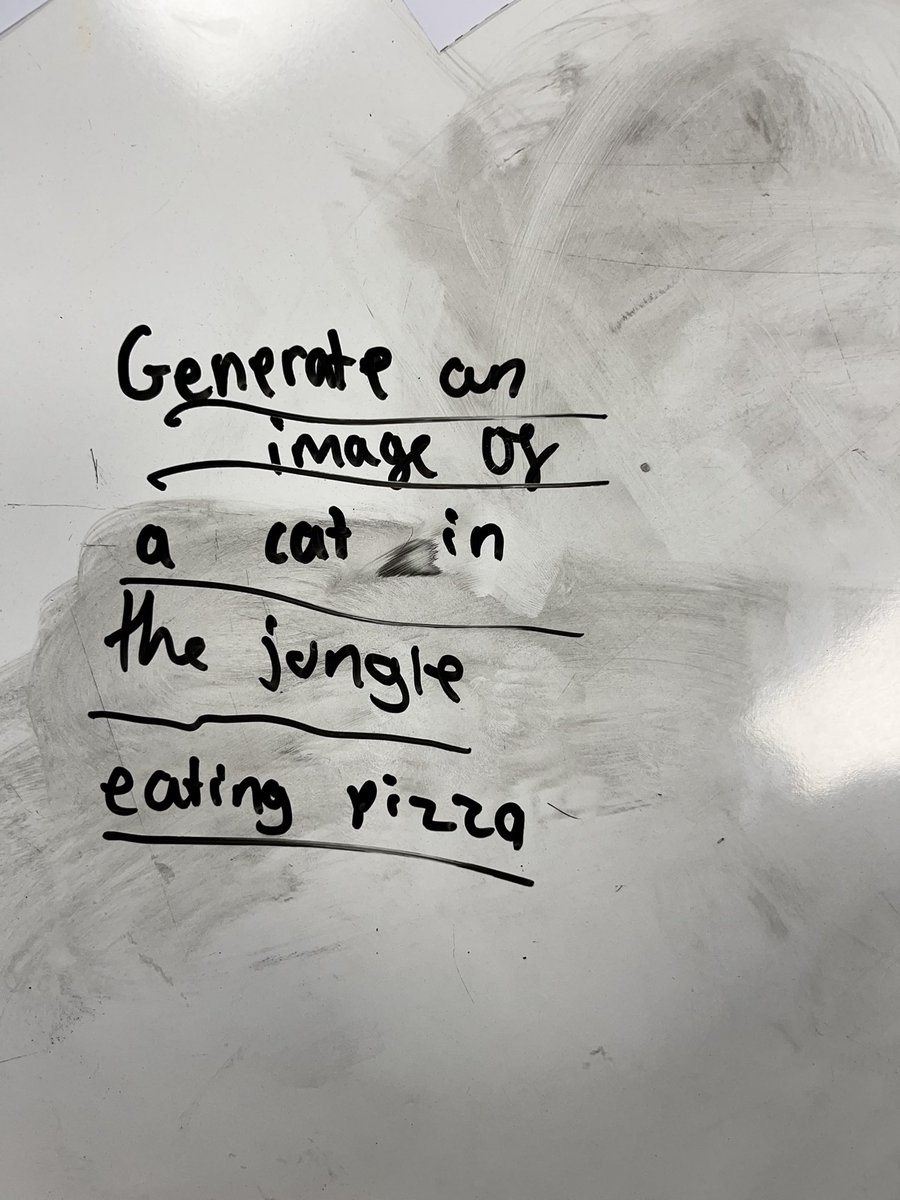 Generate an
image of
a cat in
the jungle
eating pizza